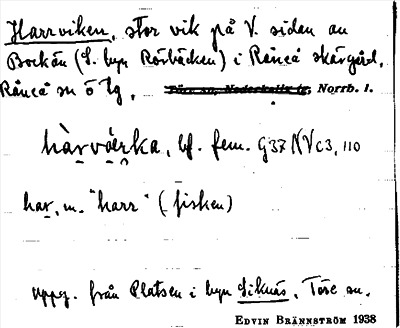 Harrviken, stor vik på V. sidan av
Bockön (S. byn Rörbäcken) i Råneå skärgård,
Råneå sn ö tg, Töre sn, Nederkalix tg, Norrb. l.
hàrvə́rka, bf. fem. G37 NVc3, 110
har, m. "harr" (fisken)
uppg. från Platsen i byn Siknäs, Töre sn.
EDVIN BRÄNNSTRÖM 1938